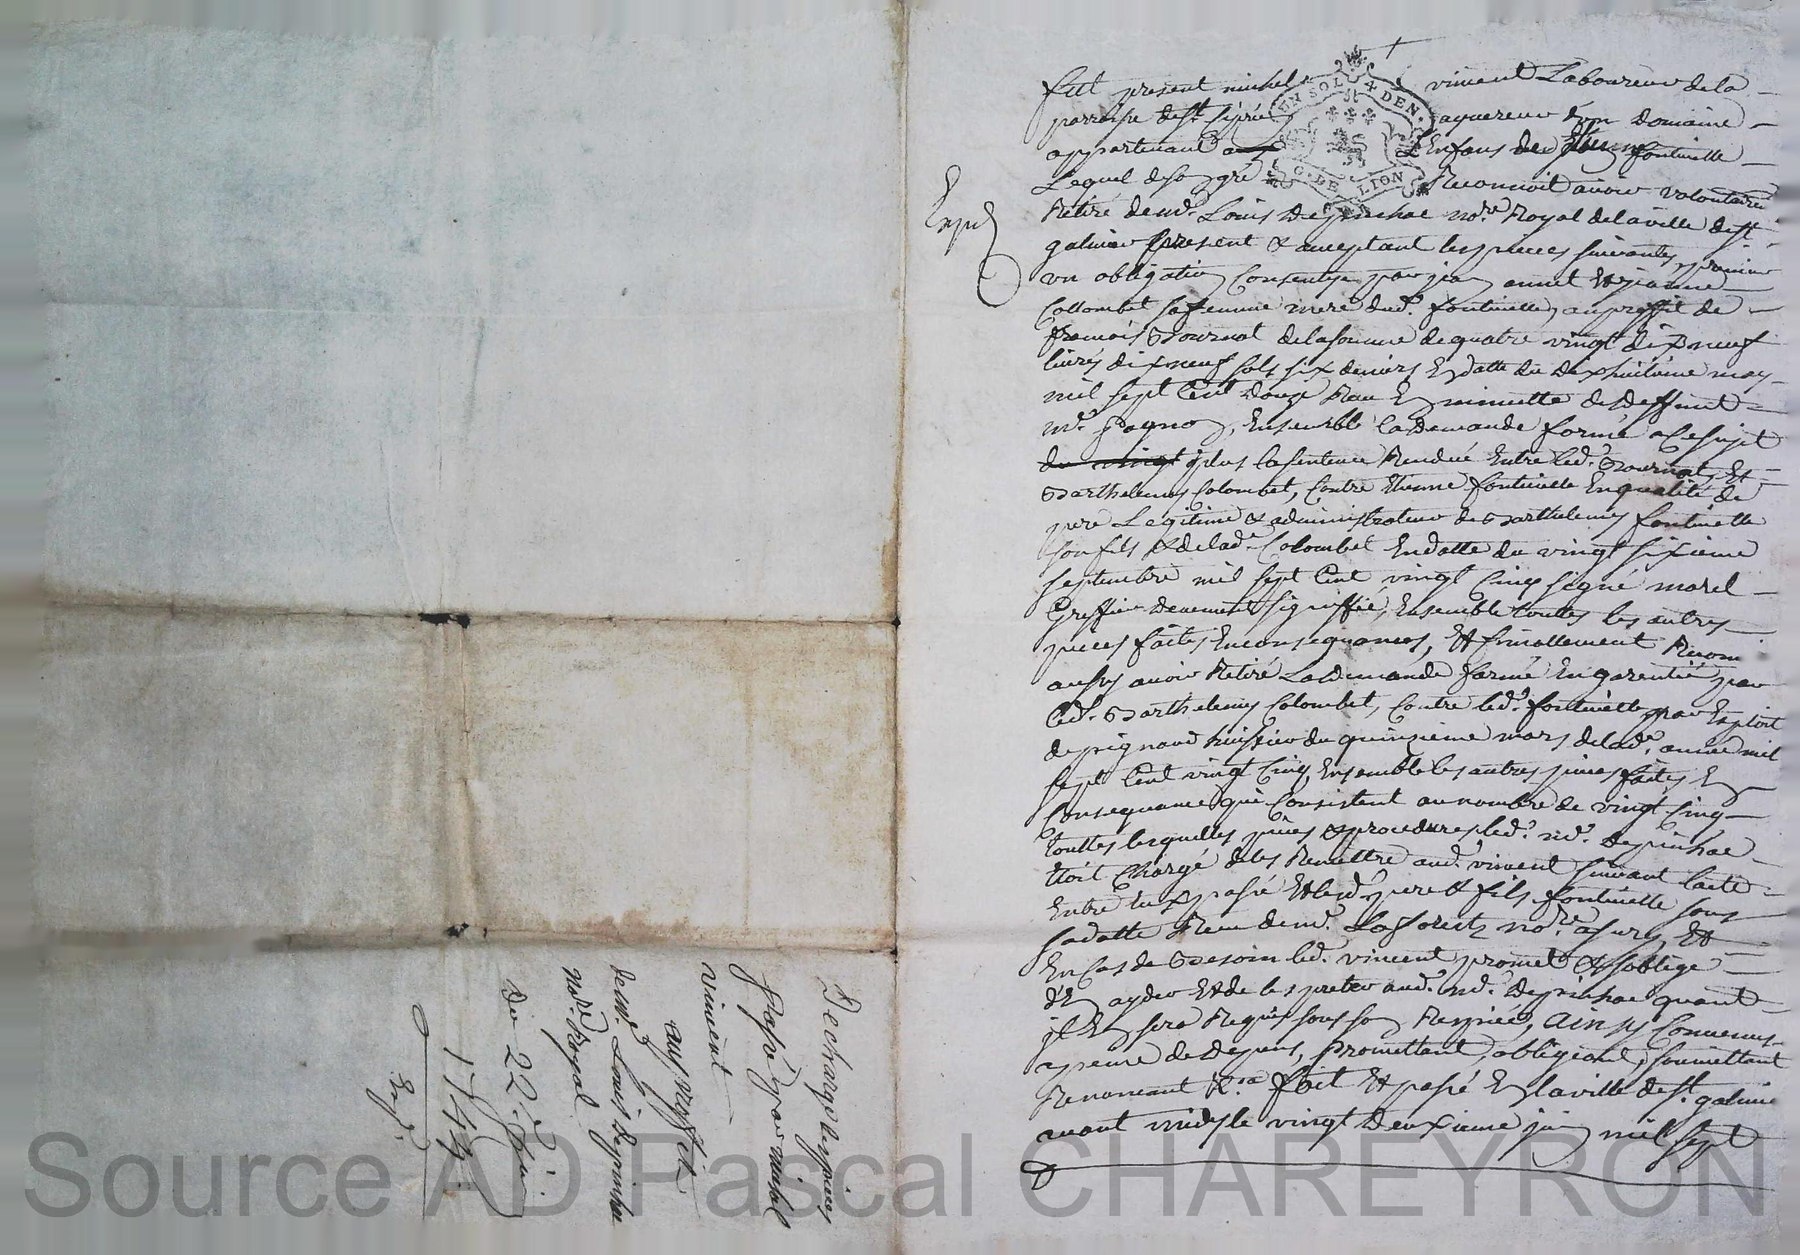 fut present michel vincent Laboureur de la
parroisse de st. Ciprien aquereur d'un domaine
appartenant a L'Enfans de Etienne fontinelle
Lequel de son gré Reconnoit avoir volontaire
Retiré de me. Louis Depinhac nore Royal de la ville de st
galmier present & acceptant les pieces suivantes, premier
un obligation Consentye par jean annet Et jeanne
Collombet sa femme mere dud. fontinelle, au proffit de
francois Bournat de la somme de quatre vingt dix neuf
livres dix neuf sols six deniers En datte du dixhuitième may
mil sept Cent douze Recu En minutte de deffunt
me. pagnon, Ensemble la demande formé a Ce sujet
du vingt plus la sentence Rendue Entre led. Bournat, Et
Barthelemy Colombet, Contre Etienne fontinelle En qualité de
pere Legitime & administrateur de Barthelemy fontinelle
son fils & de lade Colombet En datte du vingt sixième
septembre mil sept Cent vingt Cinq signé morel
Greffier deuement signiffié, Ensemble touttes les autres
pieces faites En consequances, Et finallement Recon
aussy avoir Retiré La demande formé En garentie par
led. Barthelemy Colombet, Contre led. fontinelle par Exploit
de pignard huissier du quinzieme mars de lade. année mil
sept Cent vingt Cinq, Ensemble les autres pieces faites En
Consequance qui Consistent au nombre de vingt Cinq
touttes lesquelles pieces & procedures led. me. Depinhac
Etoit Chargé de les Remettre aud. vincent suivant l'acte
Entre luy passé Et lesd. pere & fils fontinelle sous
sa datte Recu de me. nore. a sury, Et
En Cas de Besoin led. vincent promet & s'oblige
d'En ayder Et de les preter aud. me. Depinhac quant
il En sera Requis sous son Recepicé, Ainsy Convenus
a peine de depens, promettant, obligeant, soumettant
Renoncant &ra fait Et passé En la ville de st. galmier
avant midy le vingt deuxieme juin mil sept
Expé
UN SOL 4 DEN.
G. DE LION
Decharge de pieces
passé par michel
vincent
au proffit
de me. Louis Depinhac
nore Royal
Du 22e juin
1744
Expé.
Source AD Pascal CHAREYRON